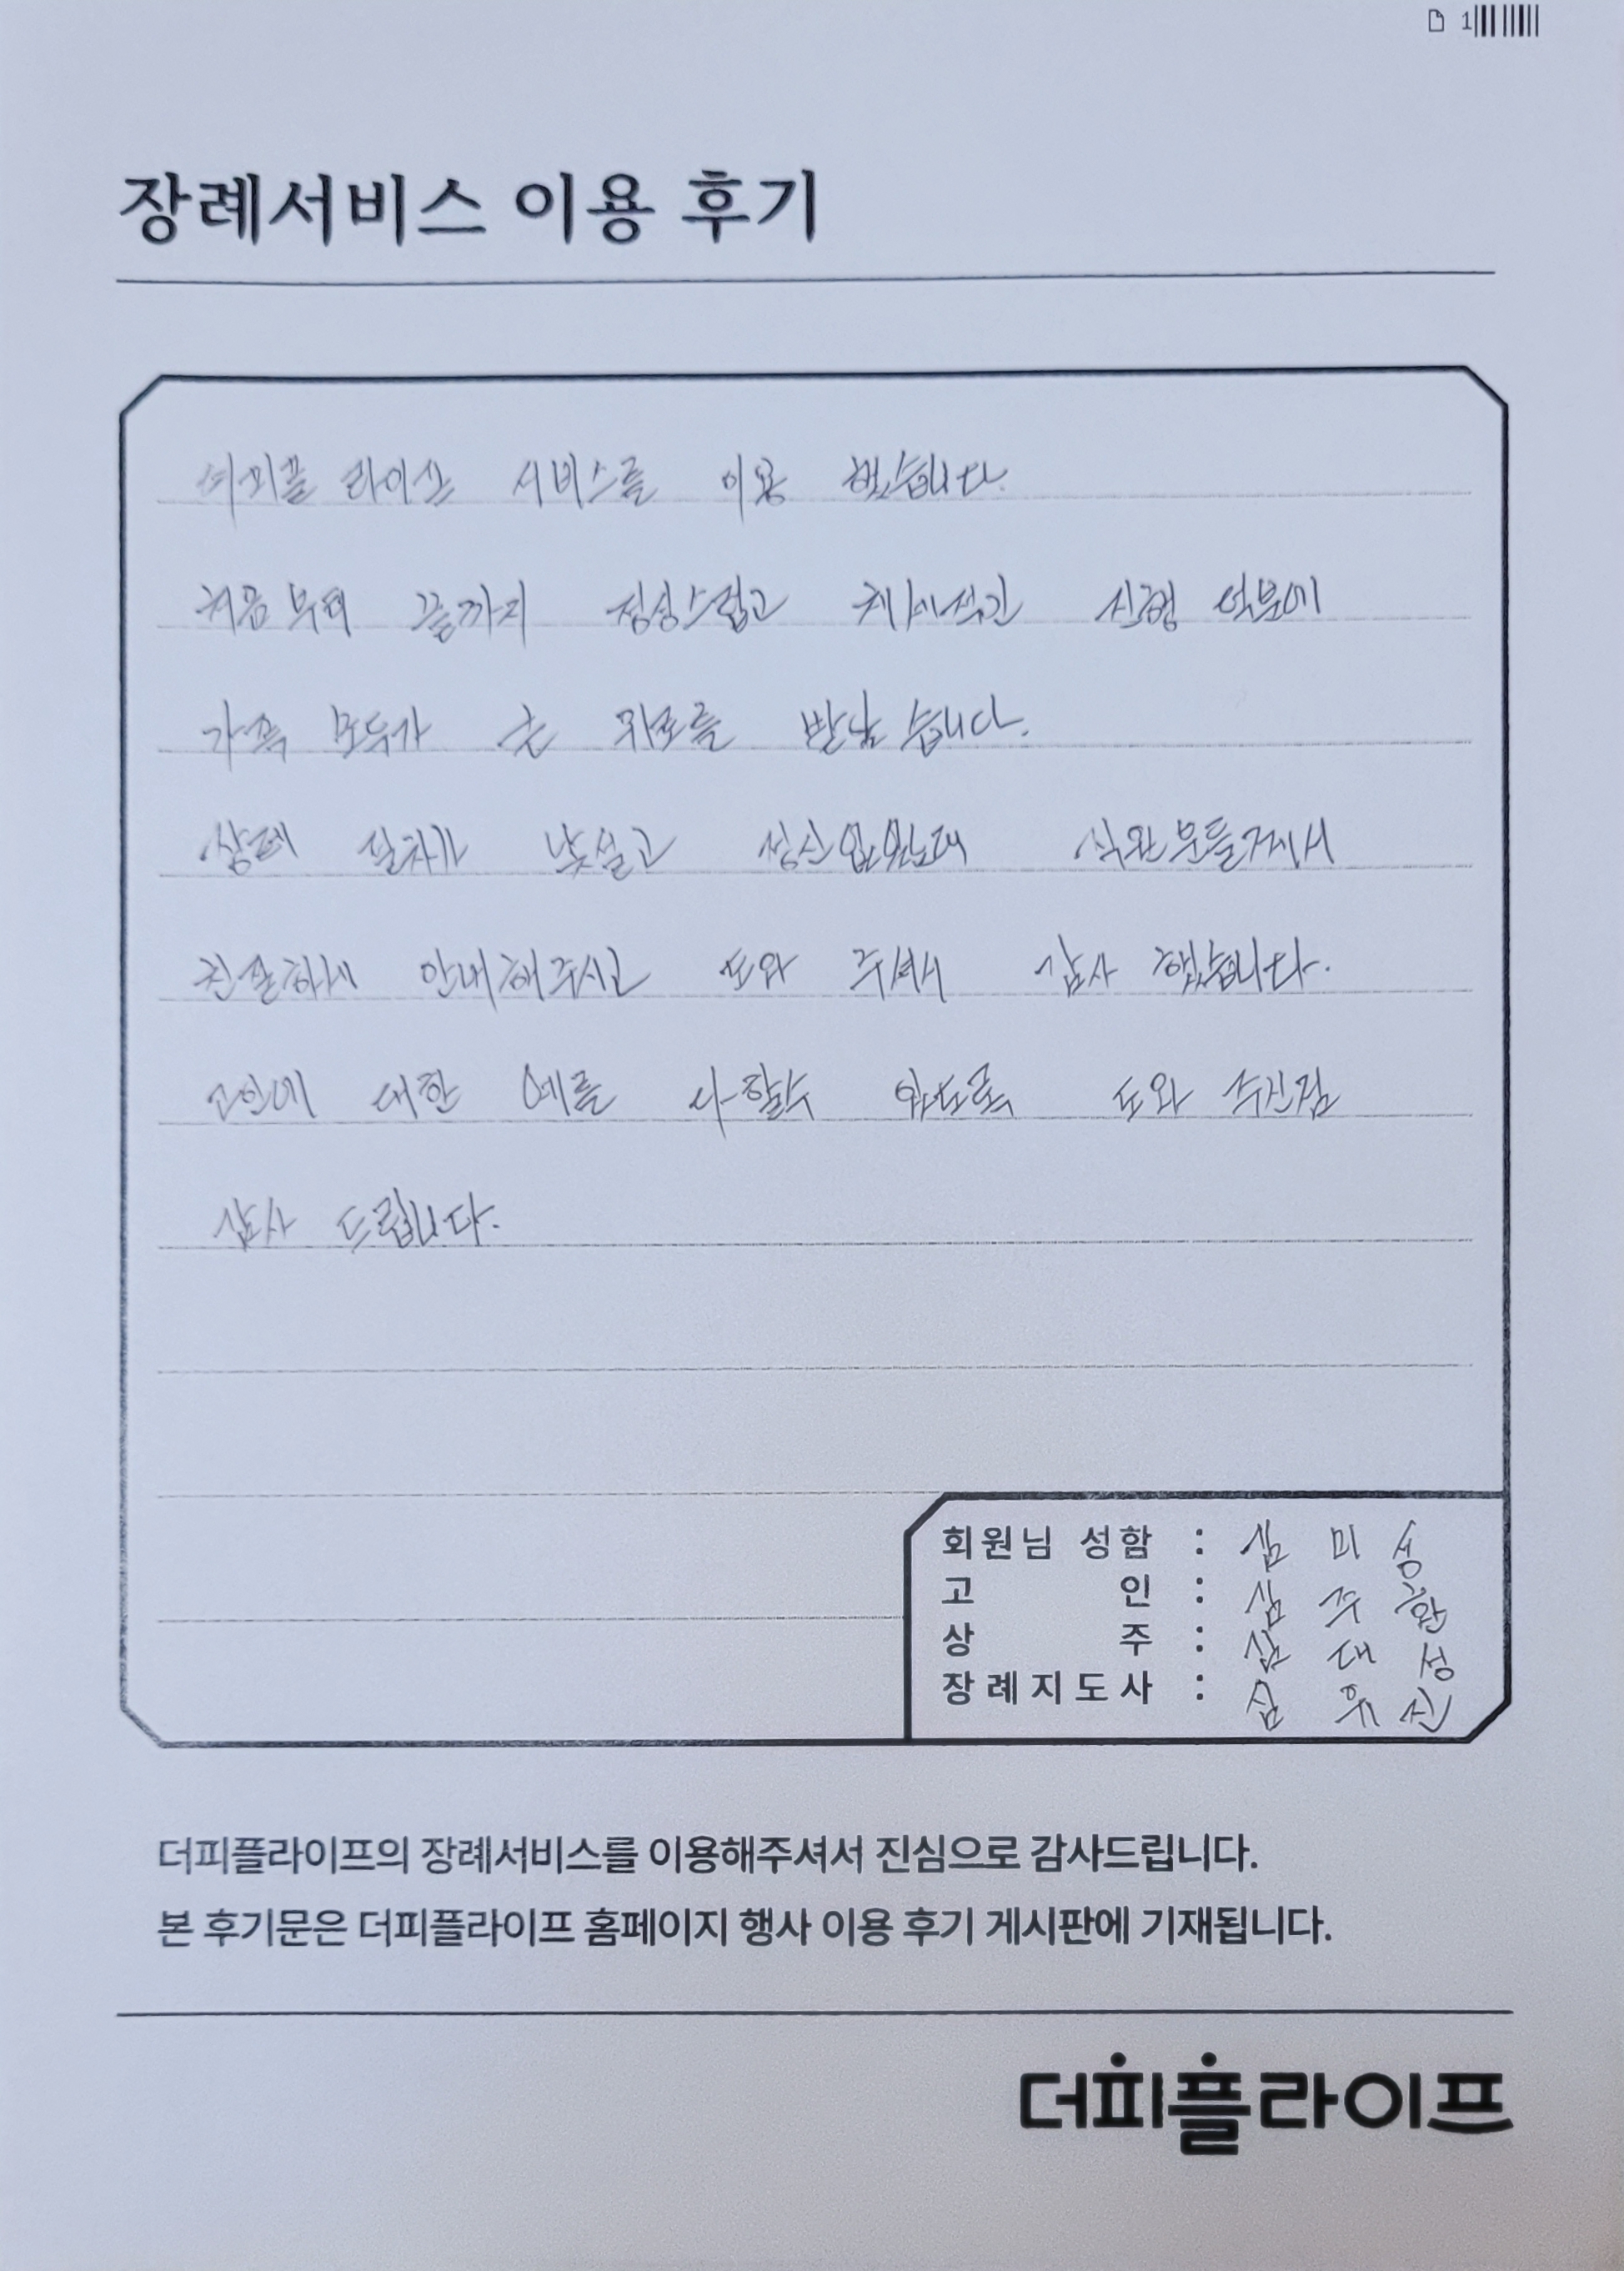 장례서비스 이용 후기
더피플 라이프 서비스를 이용 했습니다.
처음부터 끝까지 정성스럽고 체계적인 진행 덕분에
가족 모두가 큰 위로를 받았습니다.
장례 절차가 낯설고 정신없었는데 직원분들께서
친절하게 안내해주시고 도와 주셔서 감사 했습니다.
고인에 대한 예를 다할수 있도록 도와 주신점
감사 드립니다.
회원님 성함 : 심 미 송
고 인 : 심 주
상 주 : 심 대 성
장례지도사 : 심 유 진
더피플라이프의 장례서비스를 이용해주셔서 진심으로 감사드립니다.
본 후기문은 더피플라이프 홈페이지 행사 이용 후기 게시판에 기재됩니다.
더피플라이프